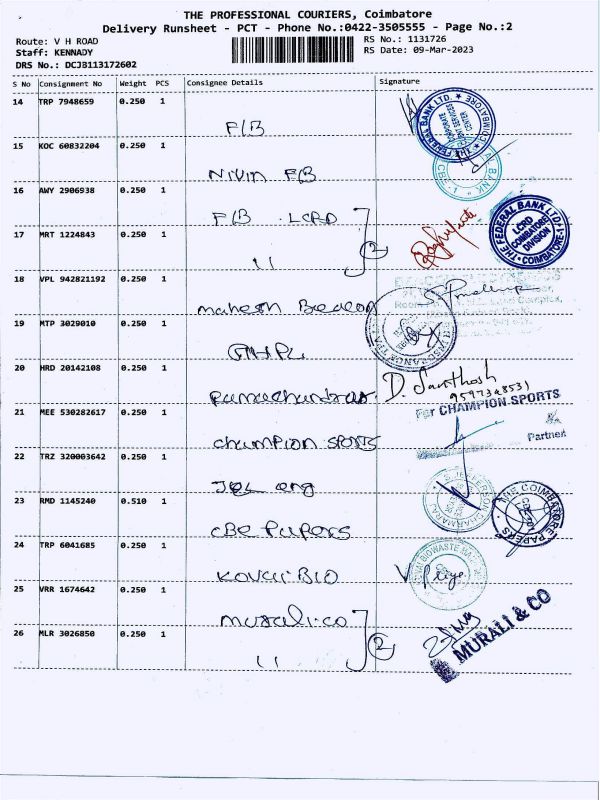 THE PROFESSIONAL COURIERS, Coimbatore
Delivery Runsheet - PCT - Phone No.:0422-3505555 - Page No.:2
Route: V H ROAD
Staff: KENNADY
DRS No.: DCJB113172602
RS No.: 1131726
RS Date: 09-Mar-2023
S No Consignment No Weight PCS Consignee Details Signature
14 TRP 7948659 0.250 1
F/B
THE FEDERAL BANK LTD. COIMBATORE
15 KOC 60832204 0.250 1
Nivin F/B
BANK
16 AWY 2906938 0.250 1
F/B LCRD
THE FEDERAL BANK LTD. COIMBATORE
LCRD COIMBATORE DIVISION
17 MRT 1224843 0.250 1
11 2
18 VPL 942821192 0.250 1
Mahesh Beacon
19 MTP 3029010 0.250 1
20 HRD 20142108 0.250 1
D. Santhosh
21 MEE 530282617 0.250 1
For CHAMPION SPORTS
champion SPORTS
Partner
22 TRZ 320003642 0.250 1
eng
23 RMD 1145240 0.510 1
CBE PAPERS
COIMBATORE PAPERS
24 TRP 6041685 0.250 1
Kovai BIO
V. Priya
25 VRR 1674642 0.250 1
Murali.co
MURALI & CO
26 MLR 3026850 0.250 1
11 2